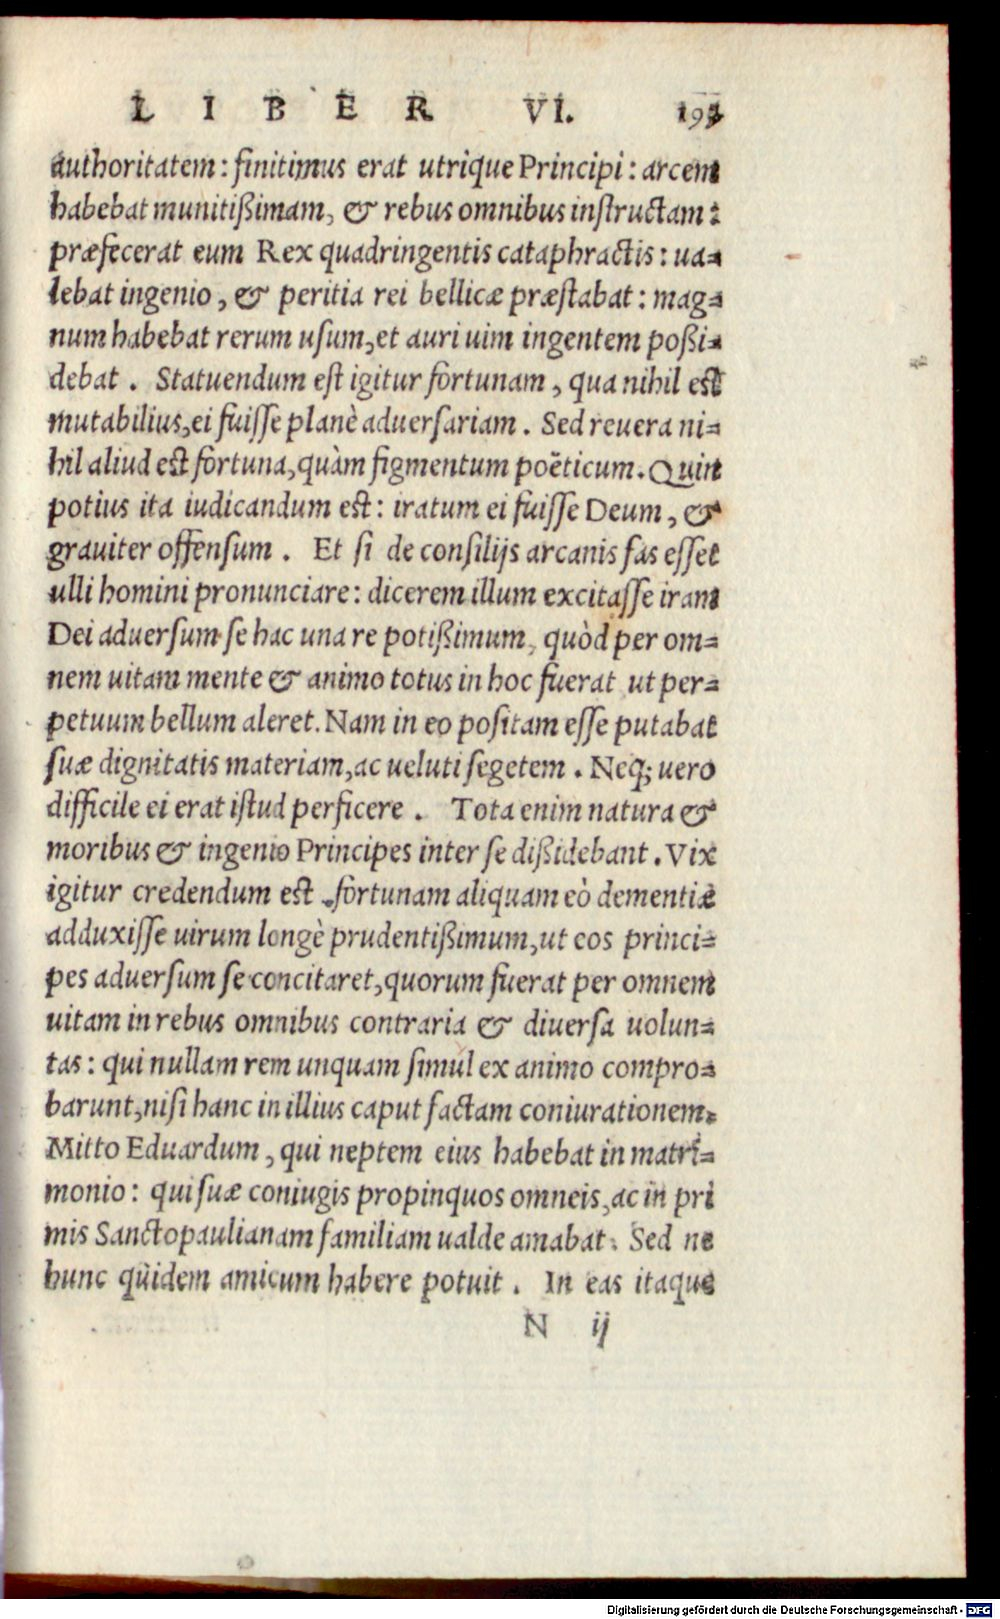 LIBER VI. 195
authoritatem: finitimus erat utrique Principi: arcem
habebat munitißimam, & rebus omnibus instructam:
præfecerat eum Rex quadringentis cataphractis: ua-
lebat ingenio, & peritia rei bellicæ præstabat: mag-
num habebat rerum usum, et auri uim ingentem poßi-
debat. Statuendum est igitur fortunam, qua nihil est
mutabilius, ei fuisse planè aduersariam. Sed reuera ni-
hil aliud est fortuna, quàm figmentum poëticum. Quin
potius ita iudicandum est: iratum ei fuisse Deum, &
grauiter offensum. Et si de consilijs arcanis fas esset
ulli homini pronunciare: dicerem illum excitasse iram
Dei aduersum se hac una re potißimum, quòd per om-
nem uitam mente & animo totus in hoc fuerat ut per-
petuum bellum aleret. Nam in eo positam esse putabat
suæ dignitatis materiam, ac ueluti segetem. Neq; uero
difficile ei erat istud perficere. Tota enim natura &
moribus & ingenio Principes inter se dißidebant. Vix
igitur credendum est fortunam aliquam eò dementiæ
adduxisse uirum longè prudentißimum, ut eos princi-
pes aduersum se concitaret, quorum fuerat per omnem
uitam in rebus omnibus contraria & diuersa uolun-
tas: qui nullam rem unquam simul ex animo compro-
barunt, nisi hanc in illius caput factam coniurationem.
Mitto Eduardum, qui neptem eius habebat in matri-
monio: qui suæ coniugis propinquos omneis, ac in pri
mis Sanctopaulianam familiam ualde amabat. Sed ne
hunc quidem amicum habere potuit. In eas itaque
N ij
Digitalisierung gefördert durch die Deutsche Forschungsgemeinschaft - DFG